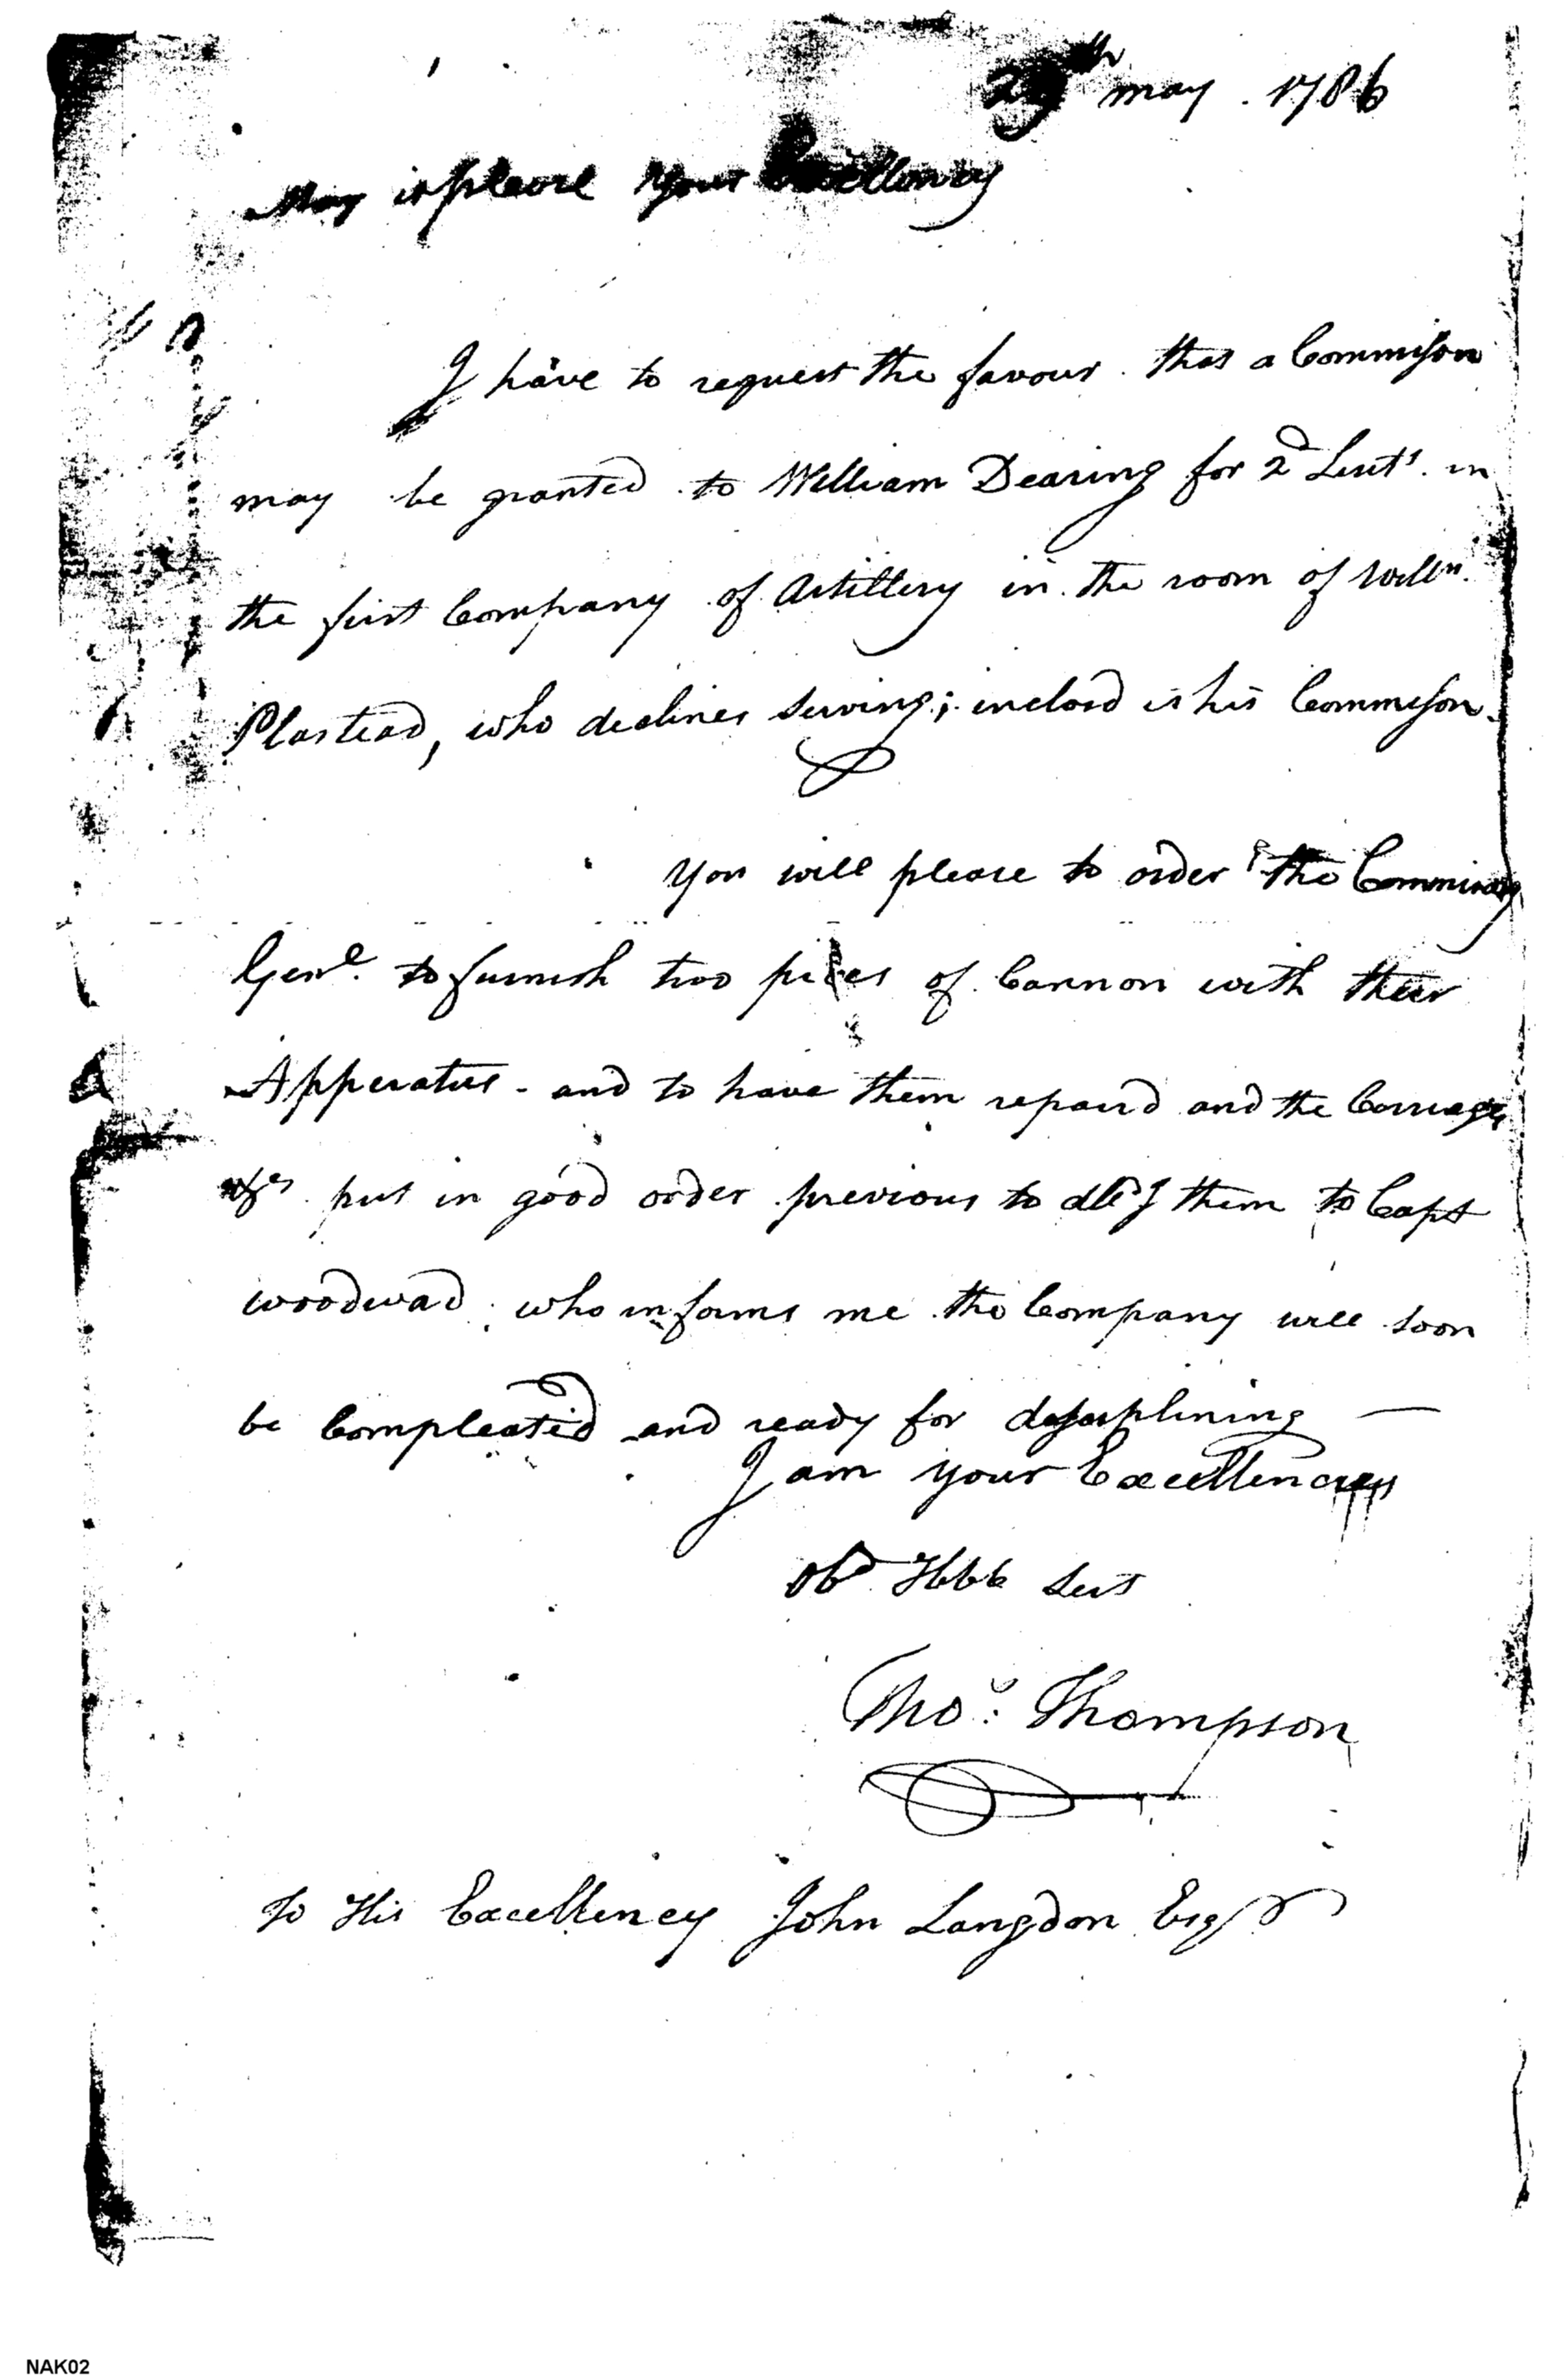 29th may . 1786
May it please Your Excellency
I have to request the favour that a Commission
may be granted to William Dearing for 2d Leutt. in
the first Company of Artillery in the room of Willm.
Plastead, who declines serving; inclosd is his Commission.
You will please to order the Commissary
Genl. to furnish two pices of Cannon with their
Apperatus - and to have them repaird and the Carriages
put in good order previous to dlg them to Capt
Woodwad, who informs me the Company will soon
be Compleatid and ready for dissiplining —
I am your Excellencys
Obd Hble Sert
Thos. Thompson
To His Excellency John Langdon Esqr
NAK02